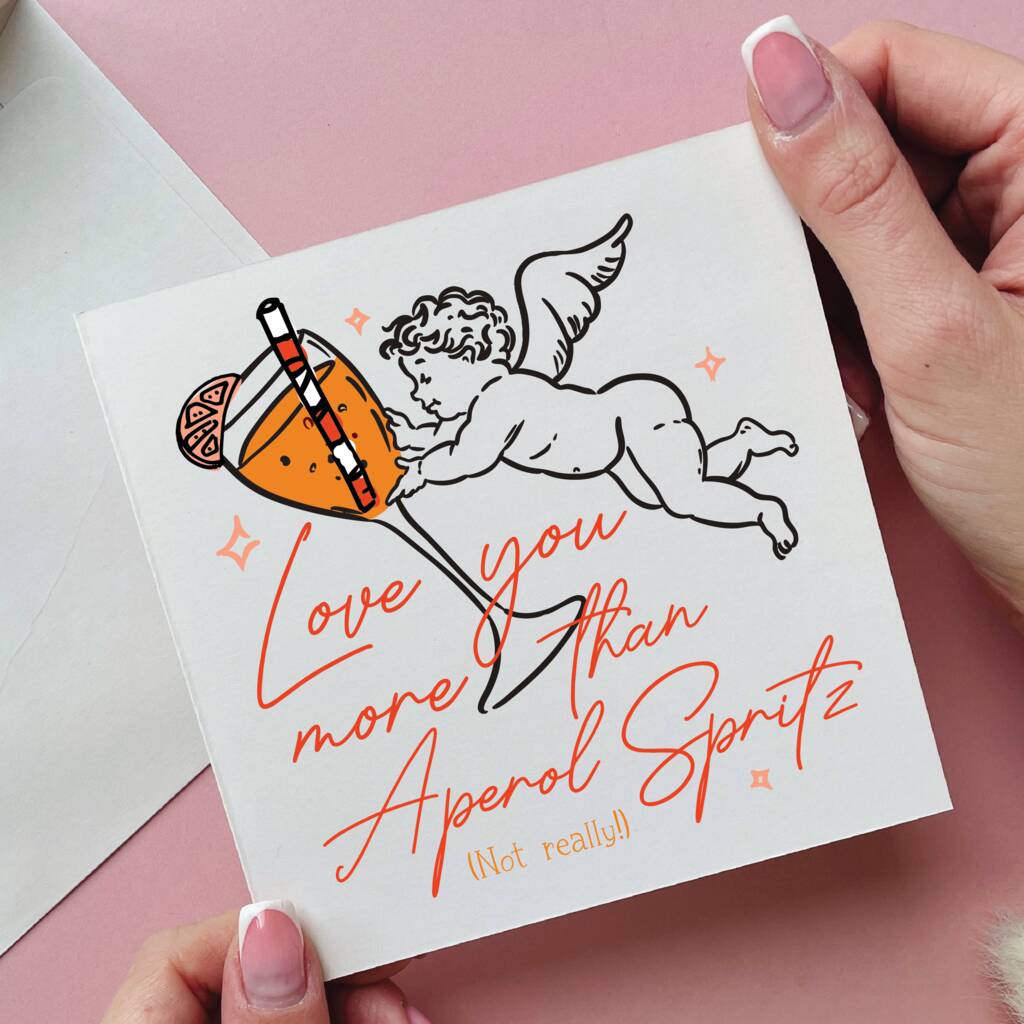 Love you
more than
Aperol Spritz
(Not really!)